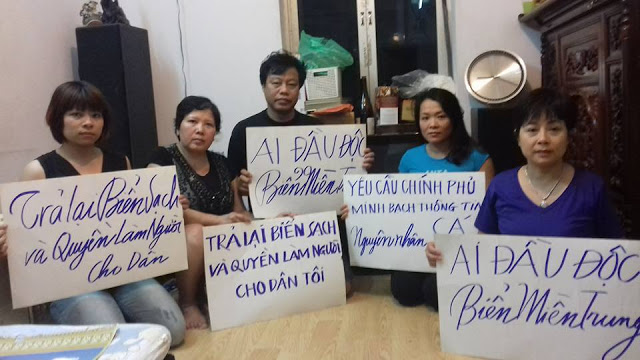 Trả lại Biển Sạch
và Quyền Làm Người
Cho Dân
TRẢ LẠI BIỂN SẠCH
VÀ QUYỀN LÀM NGƯỜI
CHO DÂN TÔI
AI ĐẦU ĐỘC
Biển Miền Tr
YÊU CẦU CHÍNH PHỦ
MINH BẠCH THÔNG TIN
Nguyên nhân CÁ
AI ĐẦU ĐỘC
Biển Miền Trung